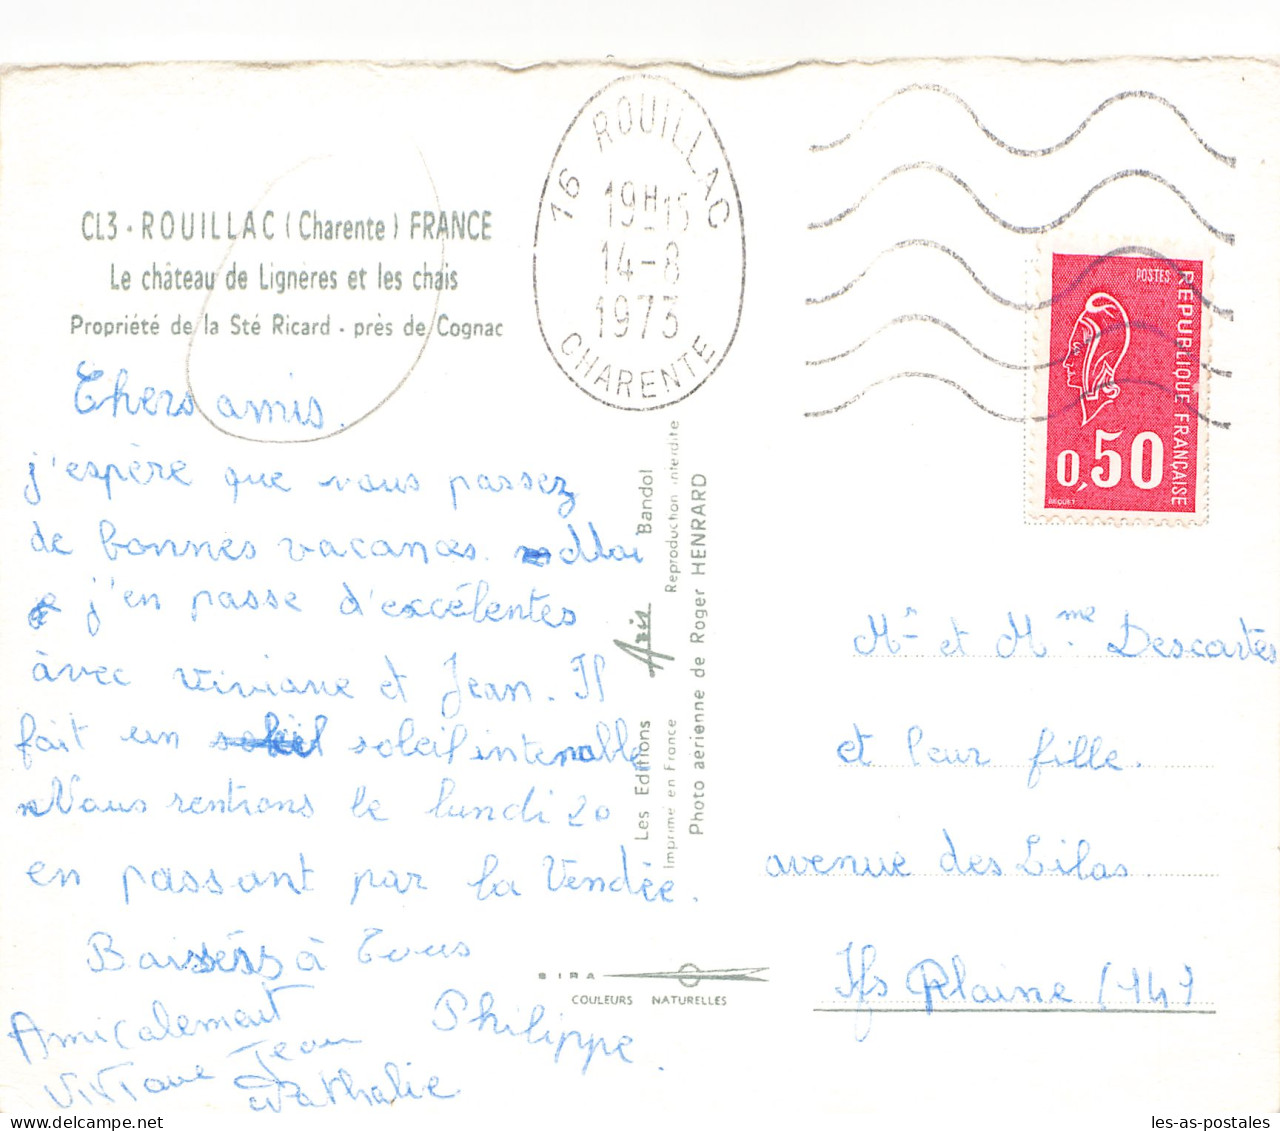 CL3 - ROUILLAC (Charente) FRANCE
Le château de Lignères et les chais
Propriété de la Sté Ricard - près de Cognac
16 ROUILLAC
19H15
14-8
1973
CHARENTE
POSTES
RÉPUBLIQUE FRANÇAISE
0,50
BEQUET
Chers amis.
j'espère que vous passez
de bonnes vacances. Moi
j'en passe d'excélentes
àvec Viviane et Jean. Il
fait un soleil intenable
Nous rentrons le lundi 20
en passant par la Vendée.
Baissérs à Tous
Philippe.
Amicalement
Viviane Jean
Nathalie
Les Editions Aris Bandol
Imprimé en France Reproduction interdite
Photo aerienne de Roger HENRARD
SIRA
COULEURS NATURELLES
Mr et Mme. Descartes
et leur fille.
avenue des Lilas.
Ifs Plaine (14)
les-as-postales